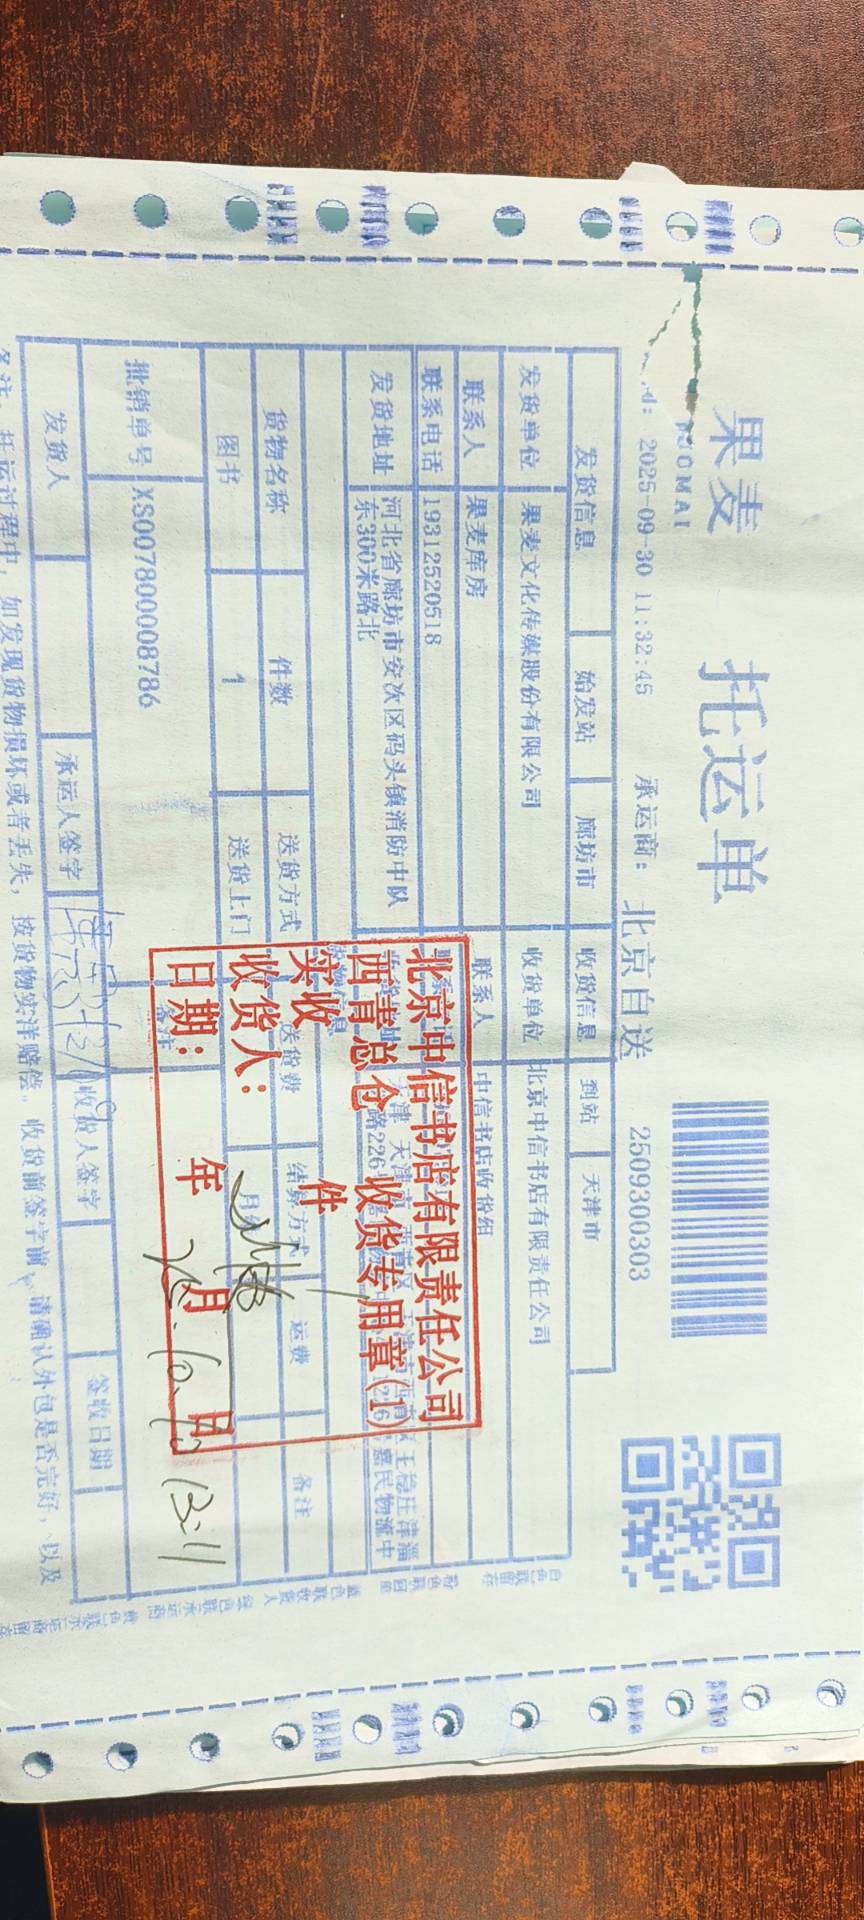 果麦
托运单
2025-09-30 11:32:45
承运商：北京自送
2509300303
发货信息 始发站 廊坊市 收货信息 到站 天津市
发货单位 果麦文化传媒股份有限公司 收货单位 北京中信书店有限责任公司
联系人 果麦库房 联系人 中信书店收货组
联系电话 19312520518
发货地址 河北省廊坊市安次区码头镇消防中队
东300米路北
货物名称 件数 送货方式 送货费 结算方式 运费 备注
图书 1 送货上门
批销单号 XS007800008786 备注
发货人 承运人签字 收货人签字 签收日期
备注：托运过程中，如发现货物损坏或者丢失，按货物实洋赔偿。收货前签字前，请确认外包是否完好，以及
北京中信书店有限责任公司
西青总仓 收货专用章(1)
实收 件
收货人：
日期： 年 月 日
13:11